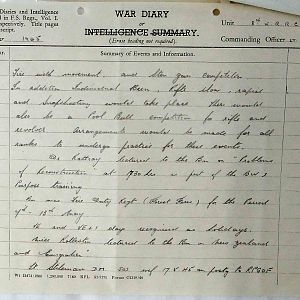 Diaries and Intelligence
d in F.S. Regs., Vol. I.
spectively. Title pages
script.
WAR DIARY
or
INTELLIGENCE SUMMARY.
(Erase heading not required).
Unit
Commanding Officer
1945
Summary of Events and Information.
Fire with movement, and Sten gun competition
In addition Sectional Bren, Rifle slow, rapid
and Snapshooting would take place. There would
also be a Pool Bull competition for rifle and
revolver. Arrangements would be made for all
ranks to undergo practice for these events.
lectured to the Bn on "Problems
of reconstruction" at 1930 hrs as part of the
Purpose training.
Bn was Fire Duty Regt for the Period
9th - 15th May
VE and VE+1 days recognised as holidays.
Miss lectured to the Bn on New Zealand
and
Lt 17.5.45 on posting to